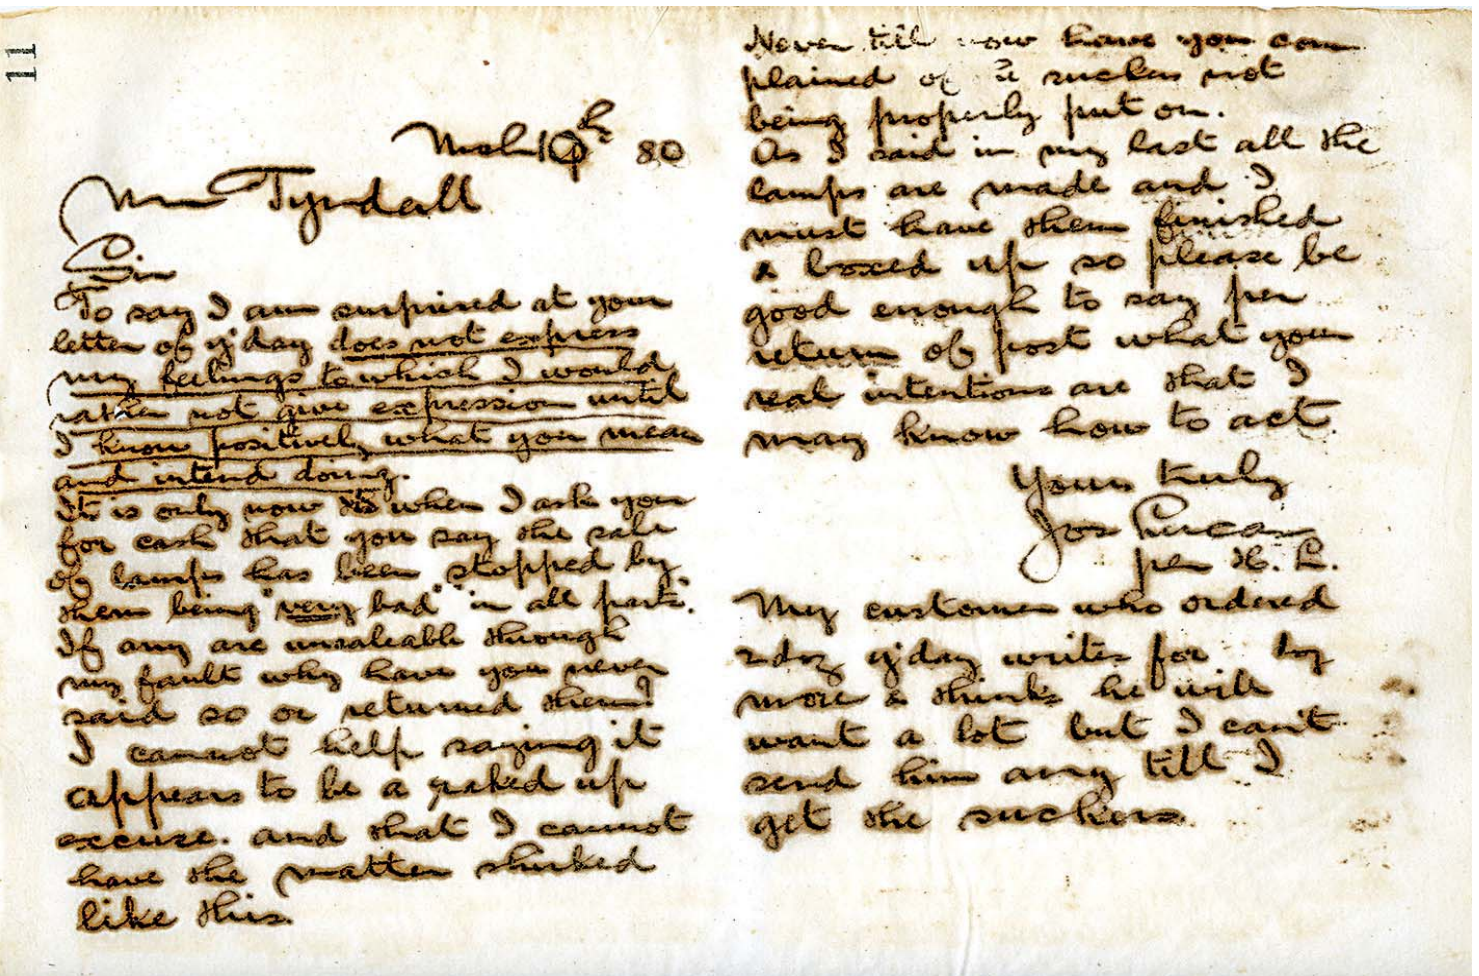 11
Mch 10th 80
Mr Tyndall
Sir
To say I am surprised at your
letter of y'day does not express
my feelings to which I would
rather not give expression until
I know positively what you mean
and intend doing.
It is only now when I ask you
for cash that you say the sale
of lamps has been stopped by
them being "very bad" in all parts.
If any are unsaleable through
my fault why have you never
said so or returned them?
I cannot help saying it
appears to be a raked up
excuse. and that I cannot
have the matter shirked
like this.
Never till now have you com
plained of suckers not
being properly put on.
As I said in my last all the
lamps are made and I
must have them finished
& boxed up so please be
good enough to say per
return of post what your
real intentions are that I
may know how to act.
Yours truly
Jos Lucas
per H. L.
My customer who ordered
2 doz y'day writes for doz
more & thinks he will
want a lot but I can't
send him any till I
get the suckers.